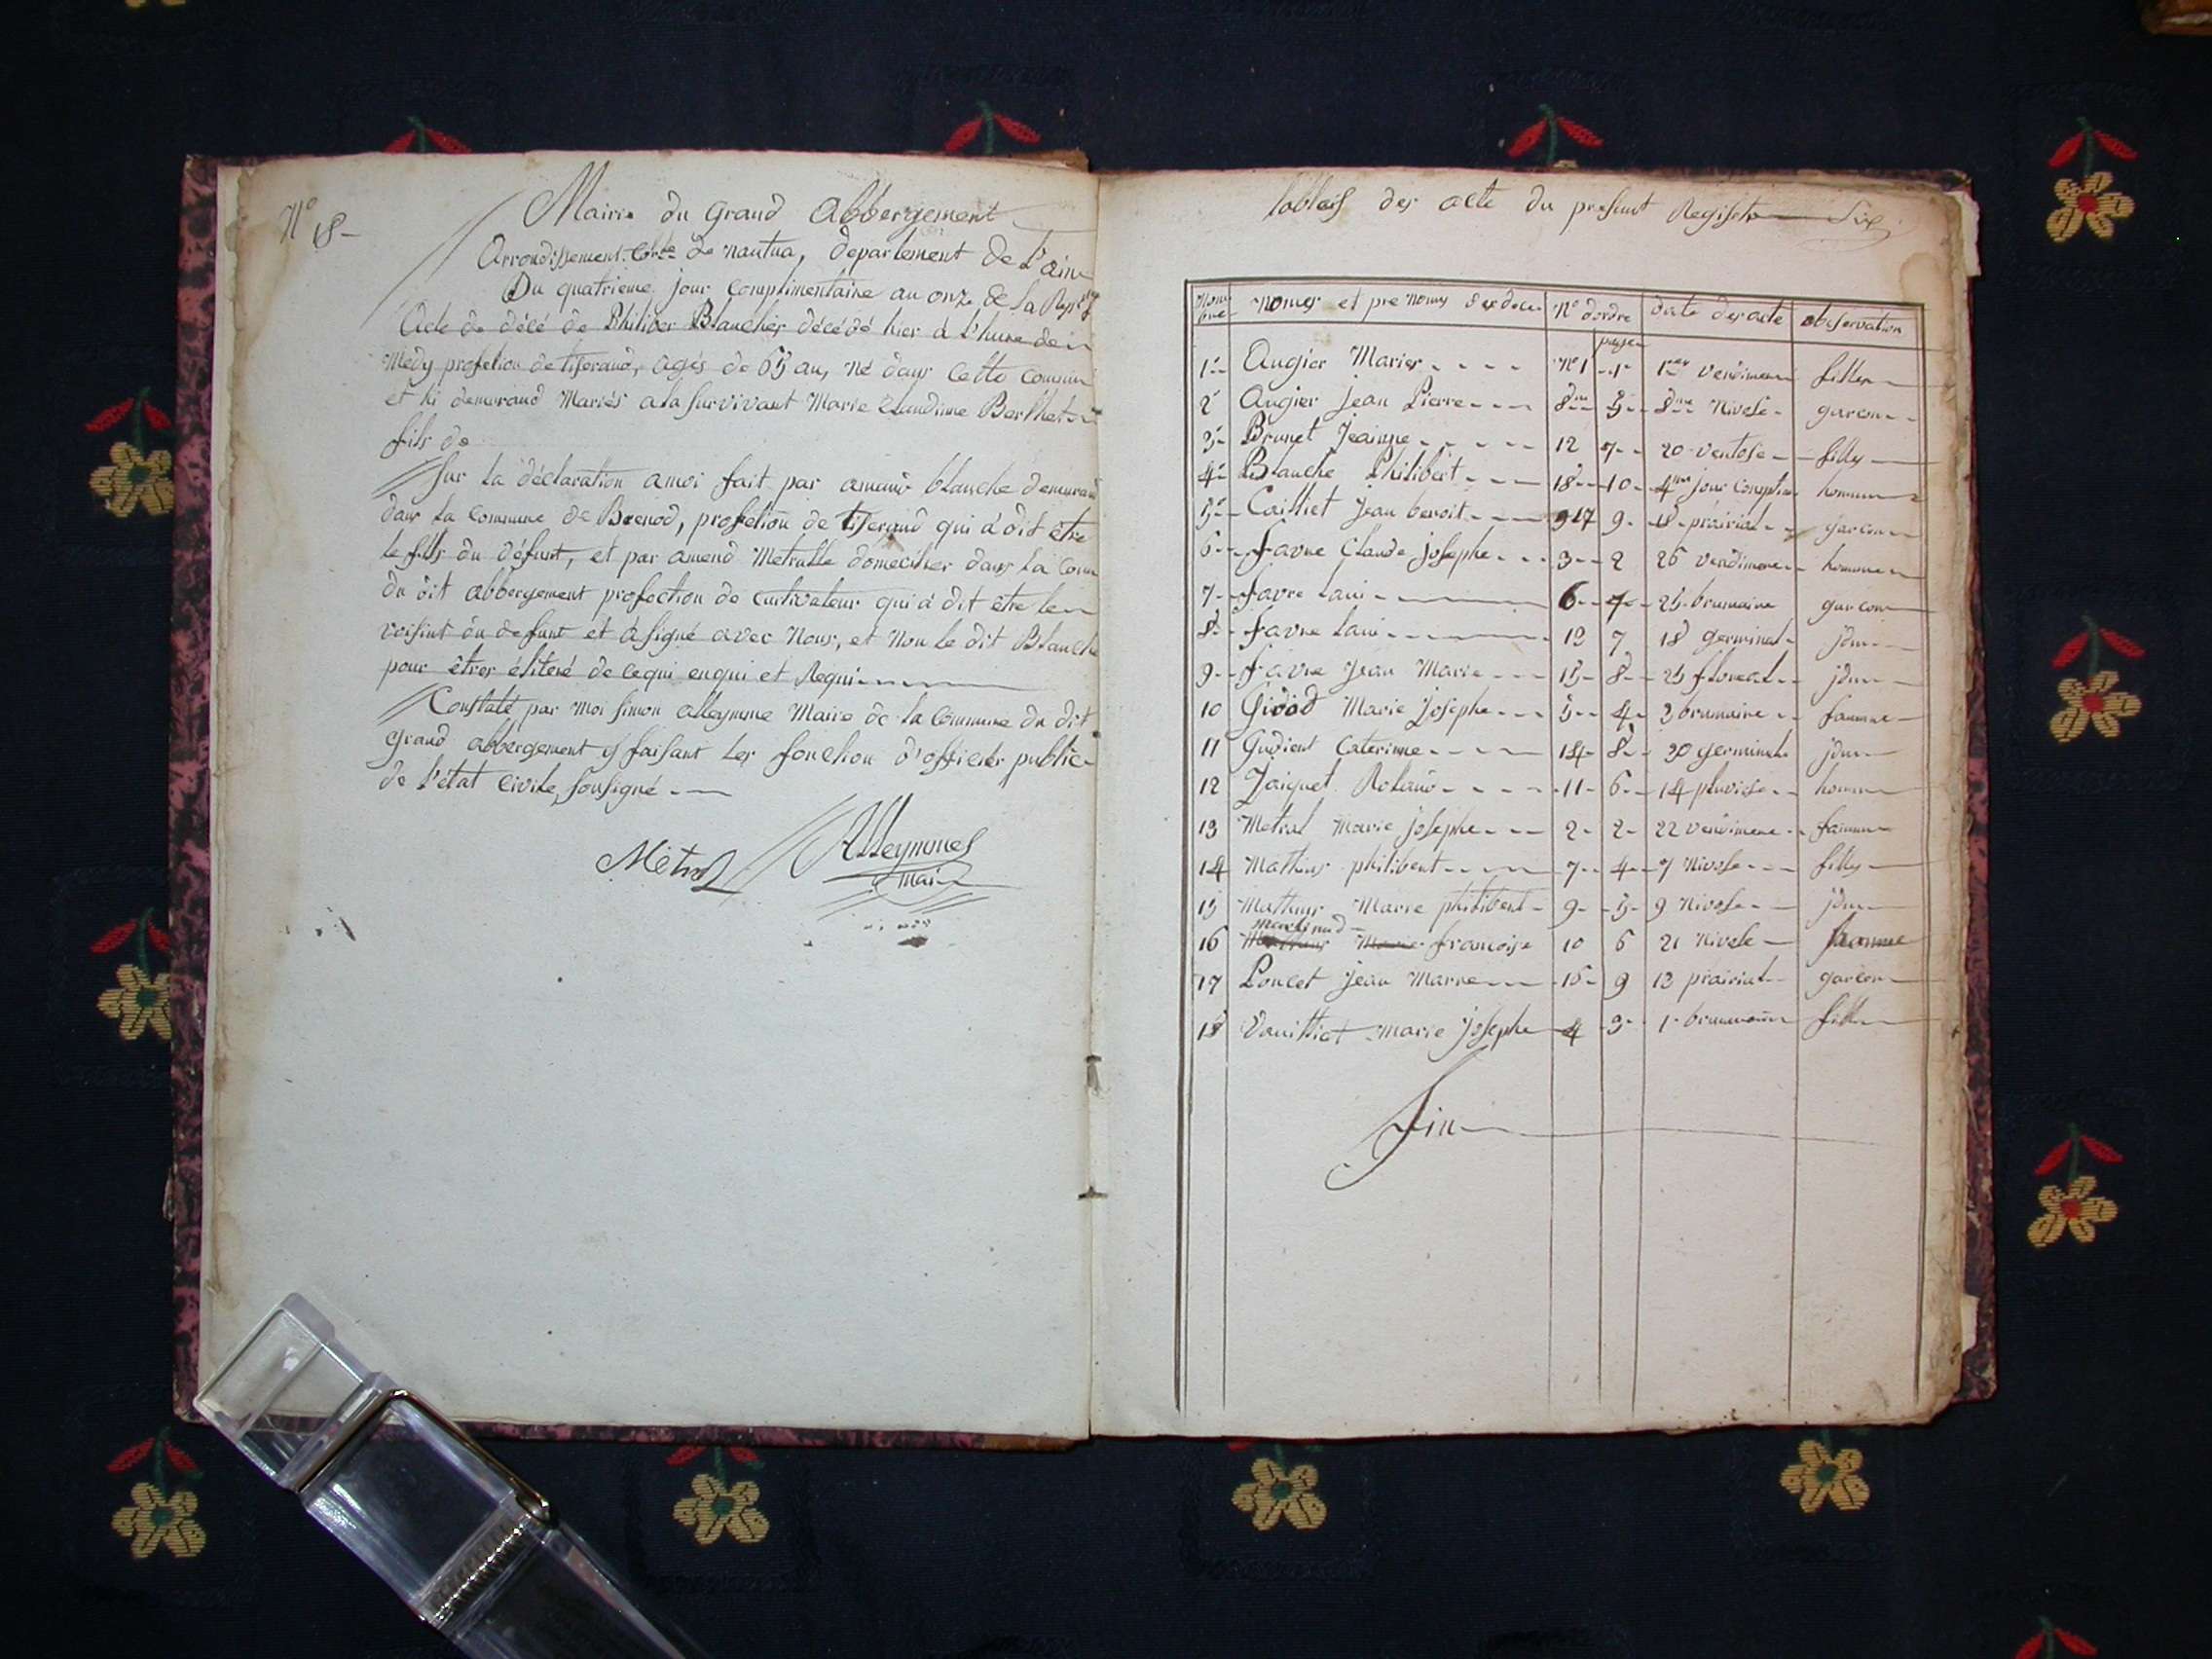 N° 18-
Mairie du Grand Abbergement
Arrondissement de nantua, departement de L'ain
Du quatrieme jour complimentaire an onze de la Rep
Acte de décé de Philiber Blancher décédé hier à L'hure de
Medy profetion de tiserand, agés de 65 an, né dans Cette commun
et hi demurand Mariés a la survivant Marie Claudinne Berthet
fils de
Sur la déclaration a moi fait par amand blanche demurand
dans la commune de Brenod, profetion de tiserand qui à dit être
le fils du défunt, et par amend Metralle domecilier dans la Com
du dit abbergement profection de Cultivateur qui à dit être le
voisint du defunt et à signé avec Nous, et Non le dit Blanche
pour être éliteré de cequi enqui et Requi
Constaté par moi simon alleymme Maire de la Commune du dit
Grand abbergement faisant les fonction d'officier public
de l'état civile, sousigné
Métral Alleymmes
mair
tables des acte du present Registre
nomer et pre nomy des dece N° dordre date des acte observation
page
1 Augier Marier N°1 1 1er vendimere filler
2 Augier jean Pierre 8me 5 8me Nivose garcon
3 Brunet Jeanne 12 7 20 ventose filly
4 Blanche Philibert 18 10 4me jour Complim homme
5 Cailliet Jean benoit 17 9 18 prairial garcon
6 favre Claude josephe 3 2 26 vendimere homme
7 favre Laui 6 4 25 brumaire garcon
8 favre Laui 13 7 18 germinal jdm
9 favre Jean Marie 15 8 25 floreal jdm
10 Girod Marie Josephe 5 4 3 brumaire famme
11 Gudient Caterinne 14 8 30 germinal jdm
12 Jaiquet Roland 11 6 14 pluviose homme
13 Metral Marie josephe 2 2 22 vendimere famme
14 Mathieus philibert 7 4 7 Nivose filly
15 Mathieus Marie philibert 9 5 9 Nivose jdm
16 martinand francoise 10 6 21 Nivose famme
17 Poncet Jean Marie 16 9 13 prairial garcon
18 Vuailliat Marie josephe 4 3 1 brumaire fille
fin